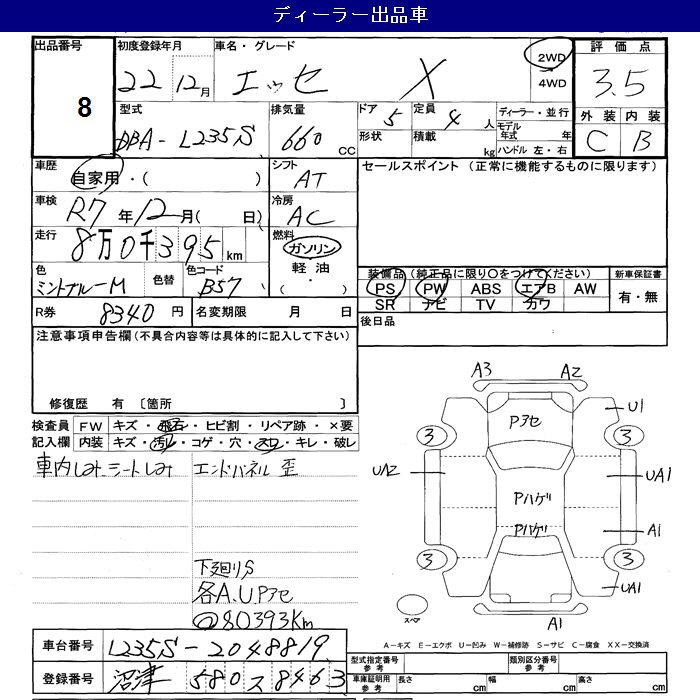 ディーラー出品車
出品番号
8
初度登録年月
22年 12月
車名・グレード
エッセ X
2WD
4WD
評価点
3.5
外装 内装
C B
型式
DBA-L235S
排気量
660 CC
ドア 5
形状
定員 4 人
積載 kg
ディーラー・並行
モデル年式 年
ハンドル 左・右
車歴
自家用・( )
シフト
AT
セールスポイント (正常に機能するものに限ります)
車検
R7年12月( 日)
冷房
AC
走行
8万0千395km
燃料
ガソリン
軽油
・( )
色
ミントブルーM
色替
色コード
B57
装備品(純正品に限り○をつけてください)
PS PW ABS エアB AW
SR ナビ TV カワ
新車保証書
有・無
R券 8340 円
名変期限 月 日
後日品
注意事項申告欄(不具合内容等は具体的に記入して下さい)
修復歴 有 〔箇所 〕
検査員 FW キズ・飛石・ヒビ割・リペア跡・×要
記入欄 内装 キズ・汚れ・コゲ・穴・スレ・キレ・破レ
車内しみ、シートしみ
エンドパネル 歪
下廻りS
各A.U.Pアセ
@80393Km
A3 A2
Pアセ
U1
3 3
UA2
UA1
Pハゲ
Pハゲ
A1
3 3
UA1
スペア
A1
A-キズ E-エクボ U-凹み W-補修跡 S-サビ C-腐食 XX-交換済
車台番号 L235S-2048819
登録番号 沼津 580 ス 8463
型式指定番号 参考
類別区分番号 参考
車庫証明用 参考 長さ cm 幅 cm 高さ cm